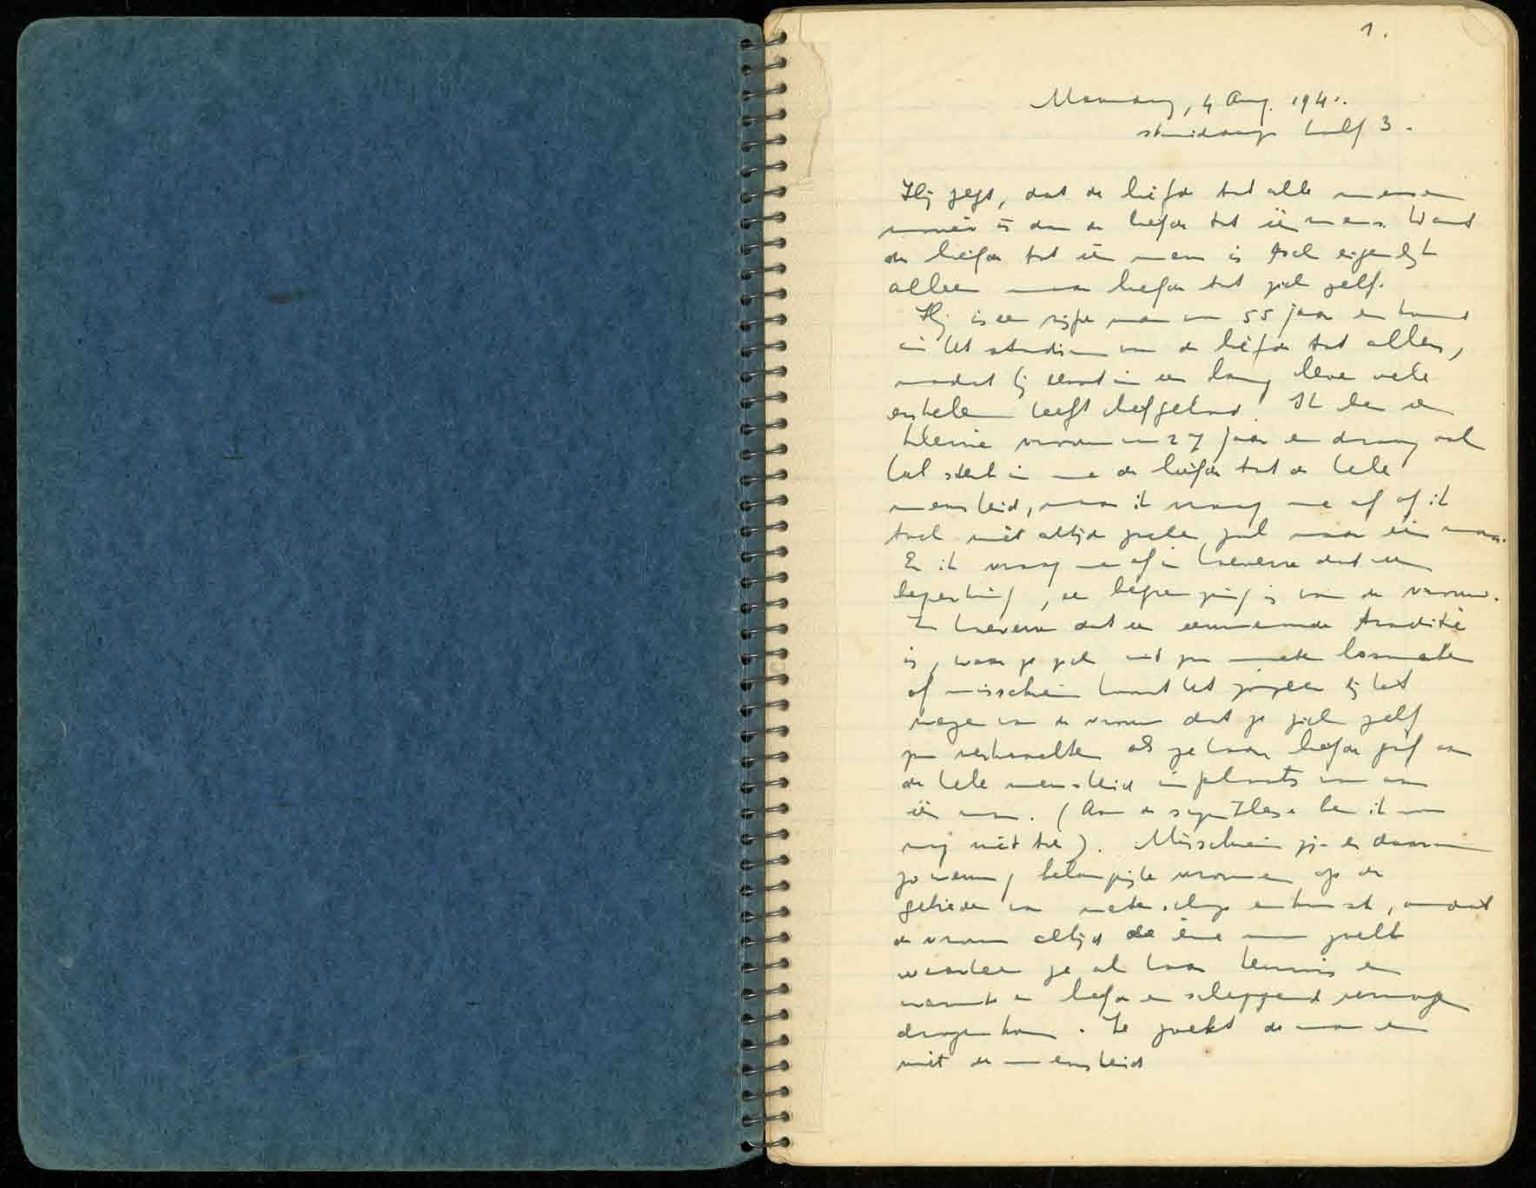 1.
Maandag, 4 Aug. 1941.
's middags half 3.
Hij zegt, dat de liefde tot alle mensen
mooier is dan de liefde tot één mens. Want
de liefde tot één mens is toch eigenlijk
alleen maar liefde tot zich zelf.
Hij is een rijpe man van 55 jaar en komt
in het stadium van de liefde tot allen,
nadat hij eerst in een lang leven vele
enkelen heeft liefgehad. Ik ben een
kleine vrouw van 27 jaar en draag ook
heel sterk in me de liefde tot de hele
mensheid, maar ik vraag me af of ik
toch niet altijd zoeken zal naar één man.
En ik vraag me af in hoeverre dat een
beperking, een begrenzing is van de vrouw.
In hoeverre dat een eeuwenoude traditie
is, waar ze zich uit zou moeten losmaken
of misschien hoort het zozeer bij het
wezen van de vrouw dat ze zich zelf
zou verkrachten als ze haar liefde gaf aan
de hele mensheid in plaats van aan
één man. (Aan de synthese ben ik nog
niet toe). Misschien zijn er daarom
zo weinig belangrijke vrouwen op de
gebieden van wetenschap en kunst, omdat
de vrouw altijd de éne man zoekt
waarheen ze al haar kennis en
warmte en liefde en scheppend vermogen
dragen kan. Ze zoekt de man en
niet de mensheid